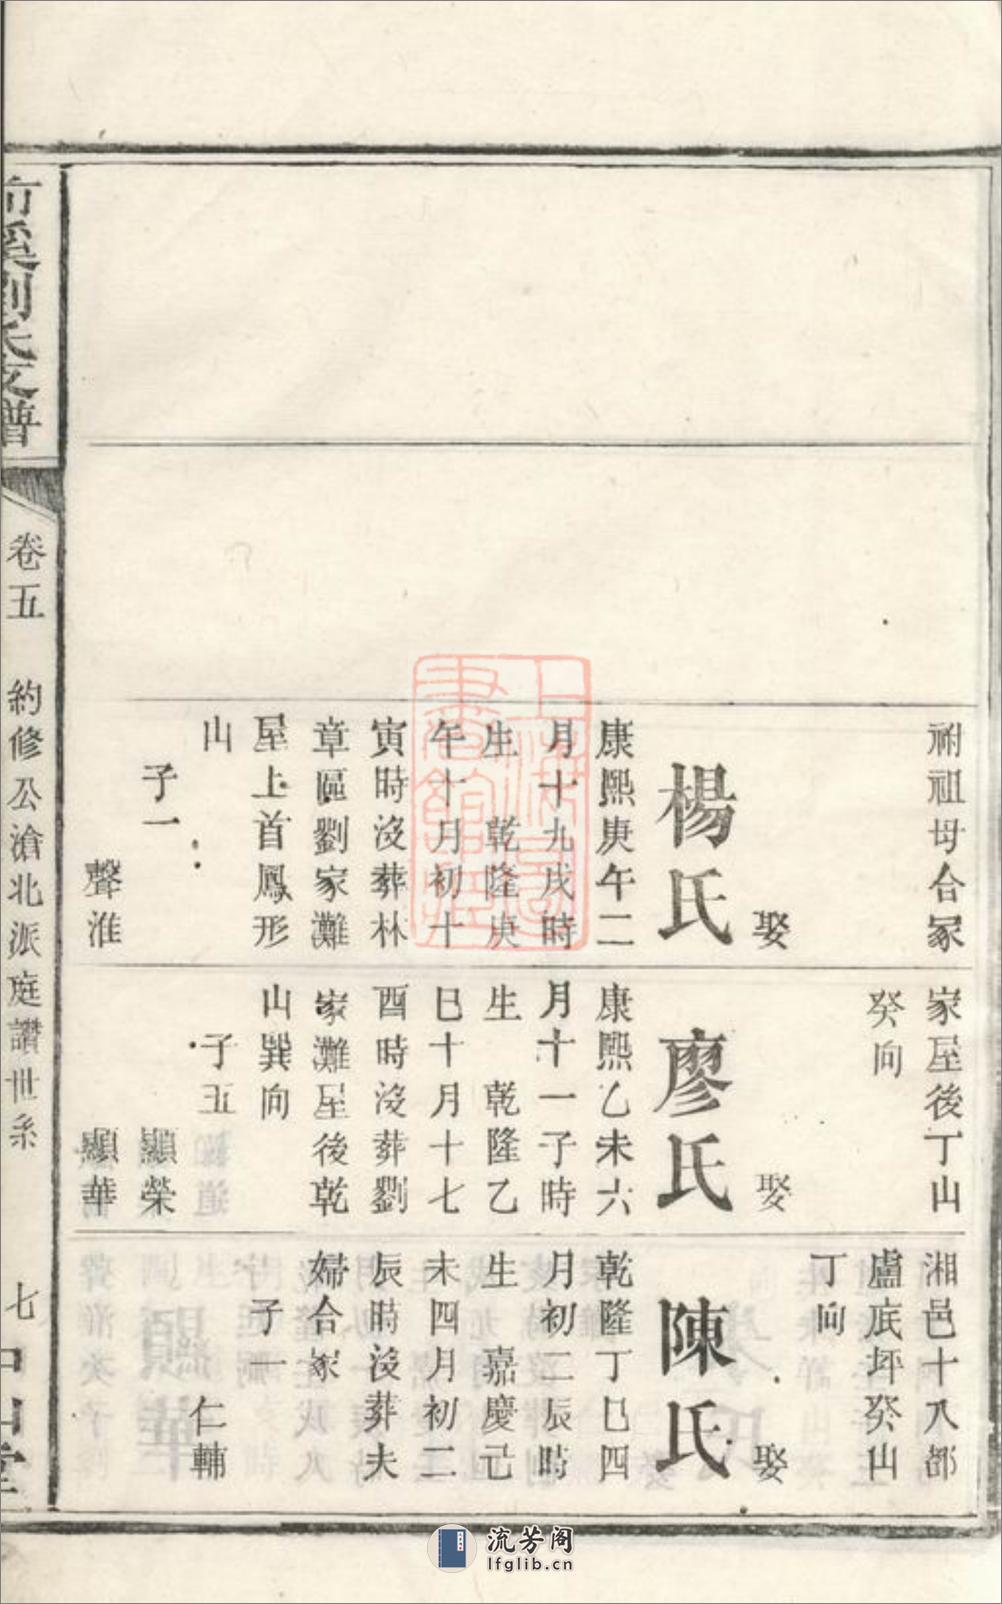 祔祖母合冢
娶
楊氏
康熙庚午二
月十九戌時
生　乾隆庚
午十月初十
寅時沒葬林
章區劉家灘
屋上首鳳形
山
子一
聲淮
家屋後丁山
癸向
娶
廖氏
康熙乙未六
月十一子時
生　乾隆乙
巳十月十七
酉時沒葬劉
家灘屋後乾
山巽向
子五
顯榮
顯華
湘邑十八都
盧底坪癸山
丁向
娶
陳氏
乾隆丁巳四
月初二辰時
生　嘉慶己
未四月初二
辰時沒葬夫
婦合冢
子一
仁輔
溪劉氏支譜
卷五　約修公滄北派庭讚世系
七
上海圖書館藏
流芳阁
lfglib.cn